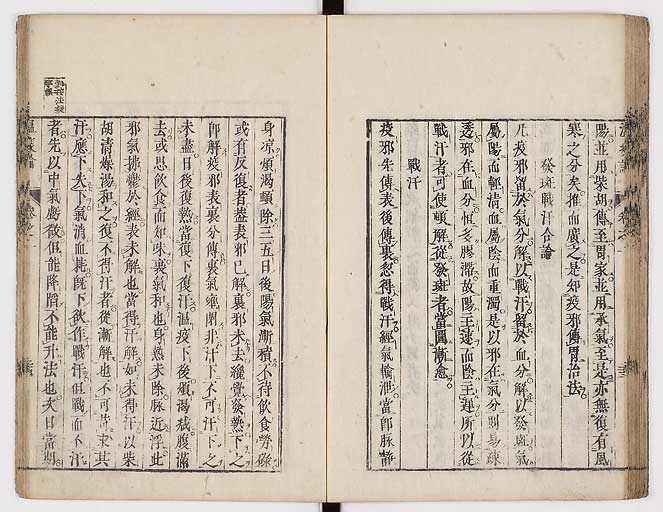 陽並用柴胡傳至胃家並用承氣至是亦無復有風
寒之分矣推而廣之是知疫邪傳胃治法
發斑戰汗合論
凡疫邪留於氣分解以戰汗留於血分解以發斑氣
屬陽而輕清血屬陰而重濁是以邪在氣分則易疎
透邪在血分恒多膠滯故陽主速而陰主遲所以從
戰汗者可使頓解從發斑者當圖漸愈
戰汗
疫邪先傳表後傳裏忽得戰汗經氣輸泄當即脉靜
身凉煩渴頓除三五日後陽氣漸積不待飲食勞碌
或有反復者蓋表邪已解裏邪未去纔覺發熱下之
即解疫邪表裏分傳裏氣壅閉非汗下不可汗下之
未盡日後復熱當復下復汗温疫下後煩渴減腹滿
去或思飲食而知味裏氣和也身熱未除脉近浮此
邪氣拂鬱於經表未解也當得汗解如未得汗以柴
胡清燥湯和之復不得汗者從漸解也不可苛求其
汗應下失下氣消血耗既下欲作戰汗但戰而不汗
者先以中氣虧微但能降陷不能升法也次日當期